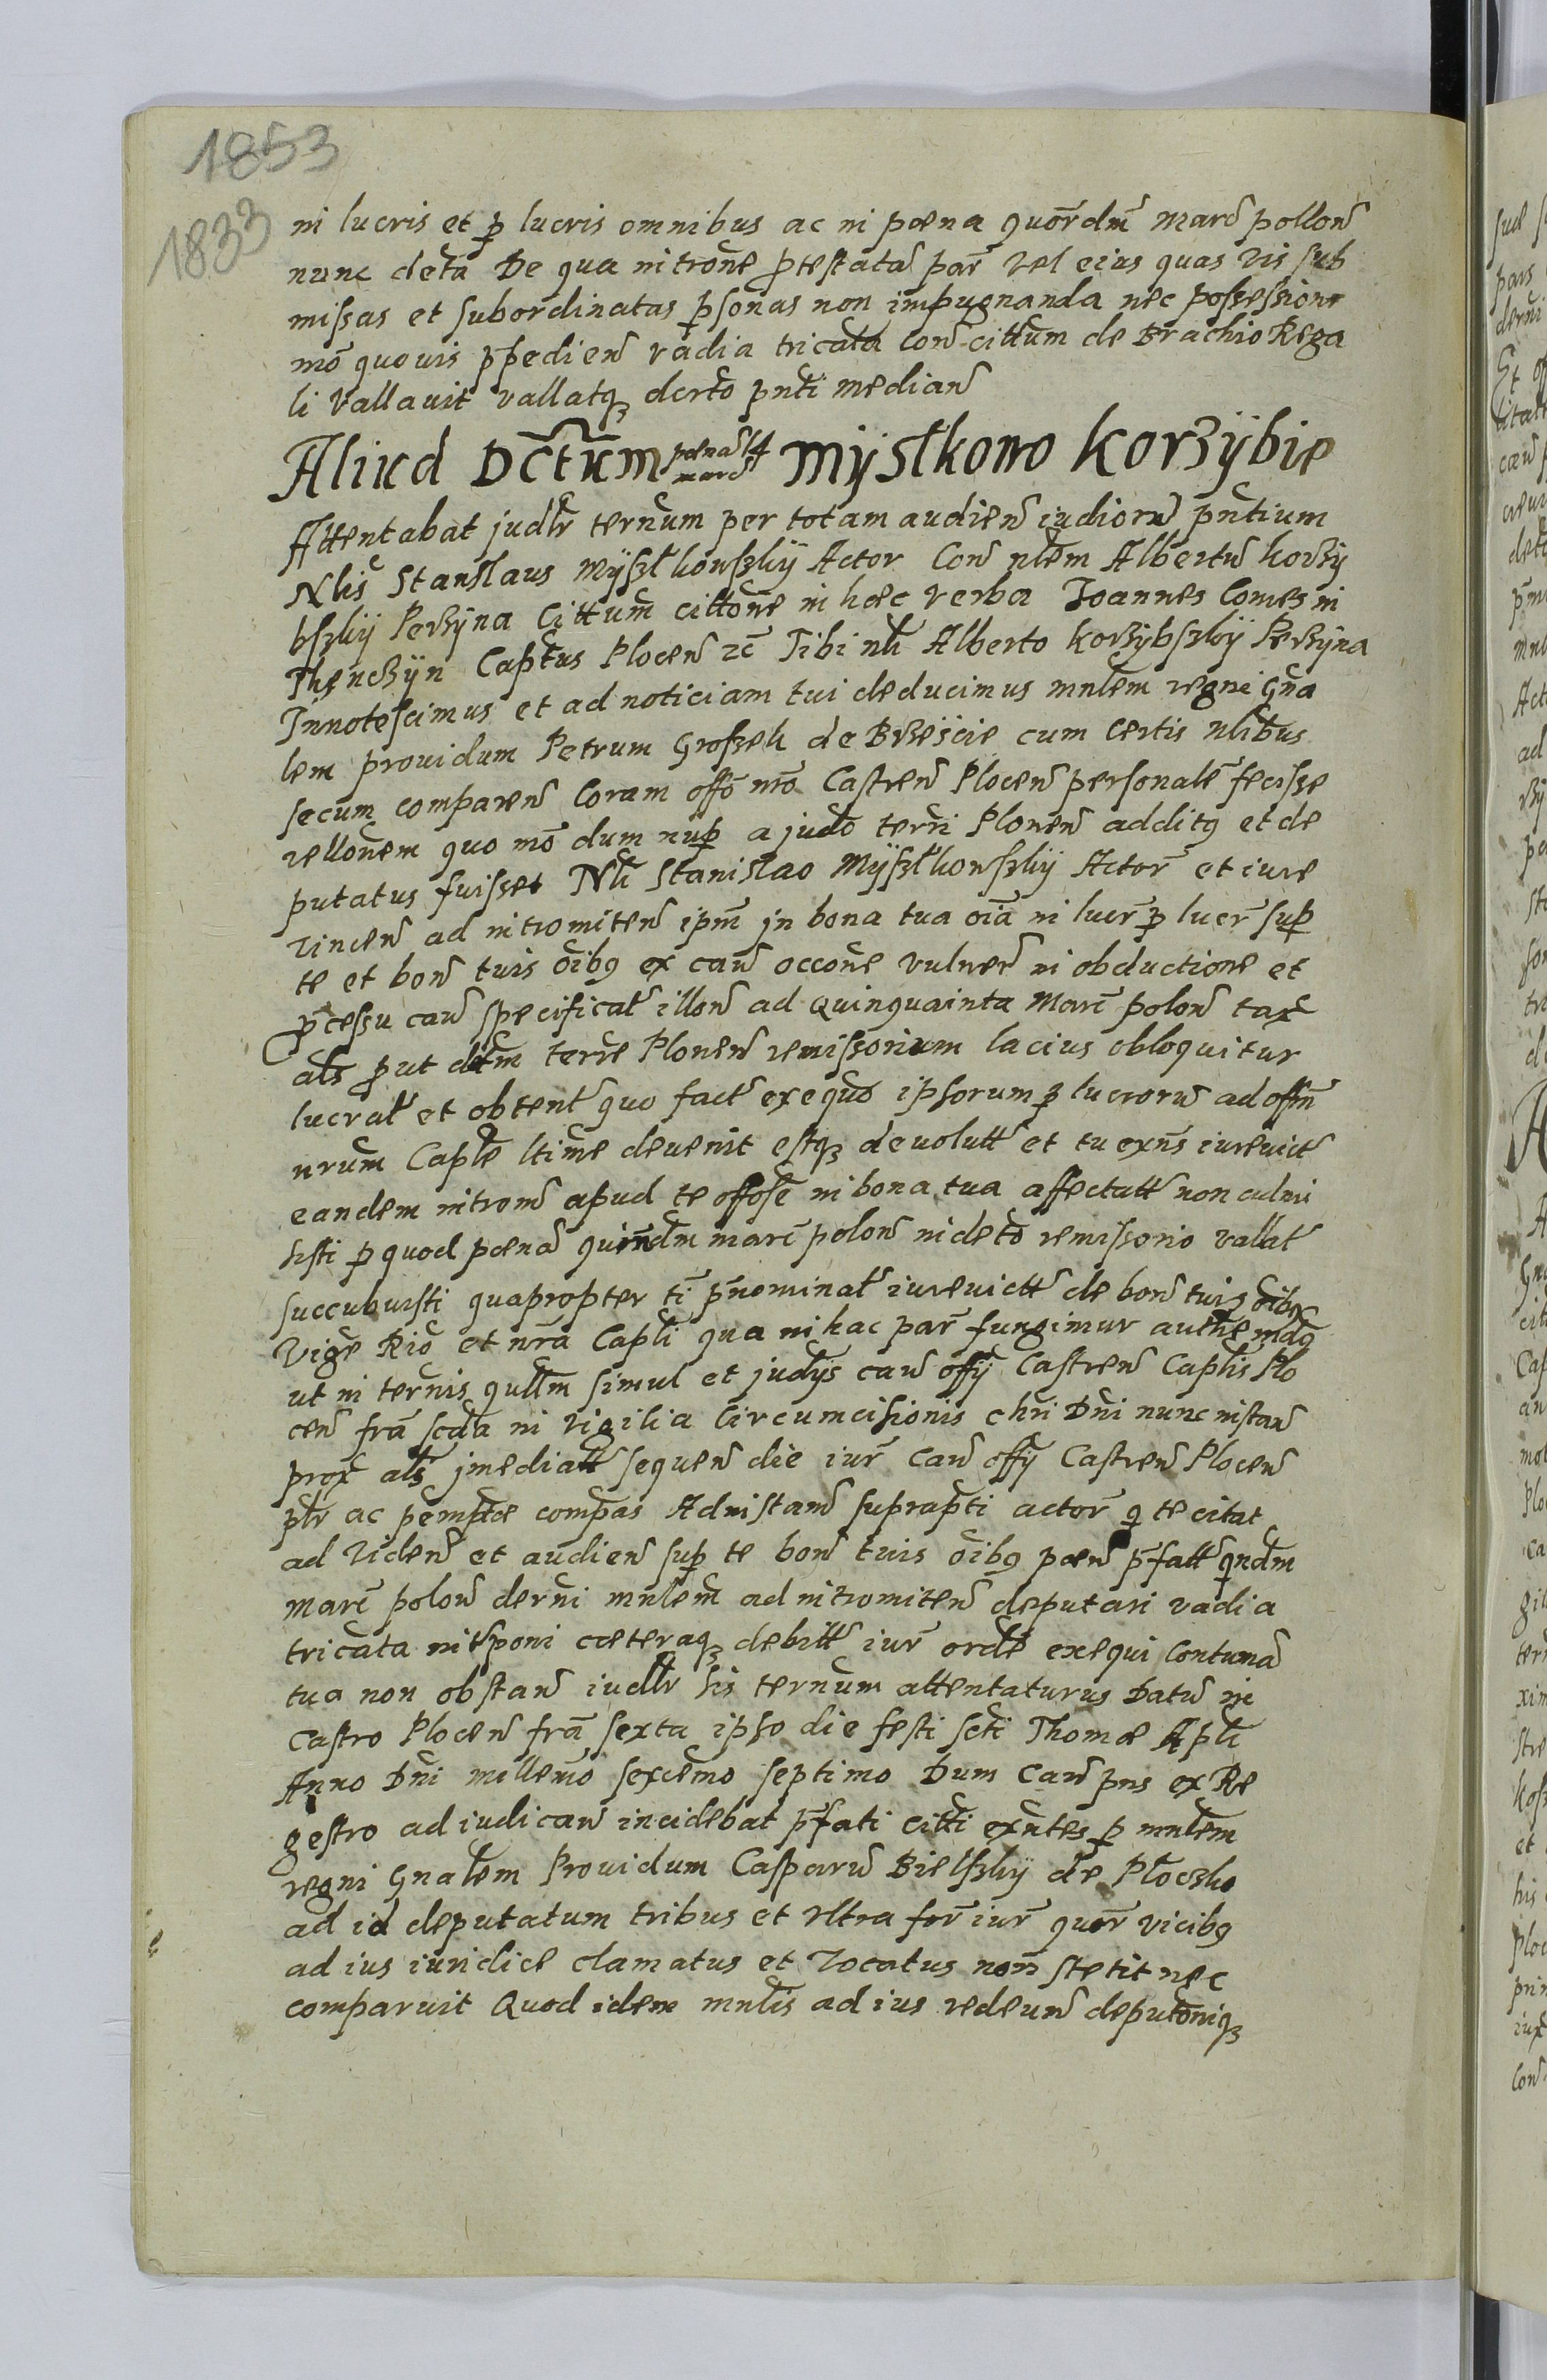 1853
1833
in lucris et p lucris omnibus ac in pœna quordm̃ marc̃ pollon̄
nunc deta De qua intrōne p̱testata par̃ vel eius quas vis sub
missas et subordinatas p̱sonas non impugnanda nec possessione
mō quovis p̱pedien̄ vadia tricata con̄ cittum de Brachio Rega
li vallavit vallatq3 dcrto pn̄ti median̄
Aliud Dctum pœna 14 marc Mÿstkowo Korzÿbie
Attentabat judlr ternum per totam audien̄ iudiorū pn̄tium
Nlis Stanslaus Mÿsztkowszkÿ Actor Con̄ nlem Albertū korzÿ
bszkÿ Perzÿna Cittum cittōne in hæc verba Joannes Comes in
Thenczÿn Captus Plocen̄ zc̃ Tibi nli Alberto korzÿbszkÿ Perzÿna
Innotescimus et ad noticiam tui deducimus mnlem regni Gña
lem providum Petrum Groszek de Brzeście cum certis nlibus
secum comparen̄ Coram offō nrō Castren̄ Plocen̄ personalē fecisse
rellonem quo mō dum nup̱ a judō terri Plonen̄ additq et de
putatus fuisset Nli Stanislao Mÿsztkowszkÿ Actor̃ et iure
vincen̄ ad intromiten̄ ipm̃ jn bona tua oīa in lucr̃ p̱ lucr̃ sup̱
te et bon̄ tuis oībq ex cau̅ occōne vulner̃ in obductione et
p̱cessu cau̅ specificat̃ illon̄ ad quinquainta Marc̃ polon̄ tax̃
als prout dctm terre Plonen̄ remissorium lacius obloquitur
lucrat̃ et obtent̃ quo fact̃ exequō ipsorum p̱ lucrorū ad offm̃
nrum Capłe ltime devenit estq3 devolutt̃ et tu exn̄s iurevict̃
eandem introm̃ apud te offose in bona tua affectatt̃ non admi
sisti p̱ quod pœna quindm marc̃ polon̄ in deto remissorio vallat̃
succubuisti quapropter ti p̄nominat̃ iurevictt̃ de bon̄ tuis oībq
vige Riō et nrā Capli qua in hac par̃ fungimur authe mdq
ut in ternis qullm simul et judÿs cau̅ offÿ Castren̄ Caplis Plo
cen̄ fra scda in vigilia Circumcisionis chri Dni nunc instan̄
prox̃ als jmediatt̃ sequen̄ die iur̃ cau̅ offÿ Castren̄ Plocen̄
plr ac pemptœ compas Ad instan̄ suprapti actor̃ q te citat
ad viden̄ et audien̄ sup̱ te bon̄ tuis oībq pœn̄ p̄fatt̃ qndm
marc̃ polon̄ derni mnlem ad intromiten̄ deputari vadia
tricata interponi cæteraq3 debitt̃ iur̃ orde exequi Contuma
tua non obstan̄ iudlr sis ternum attentaturus Datū in
Castro Plocen̄ fra sexta ipso die festi scti Thomæ Apli
Anno Dni millemō sexcemo septimo Dum Cau̅ pns ex Re
gestro ad iudican̄ incidebat p̄fati citti exntes p̱ mnlem
regni Gnalem Providum Casparū Bielszkÿ de Płoczko
ad id deputatum tribus et ultra for̃ iur̃ quor̃ vicibq
ad ius iuridice clamatus et vocatus non̄ stetit nec
comparuit Quod idem mnlis ad ius redeun̄ deputoniq3